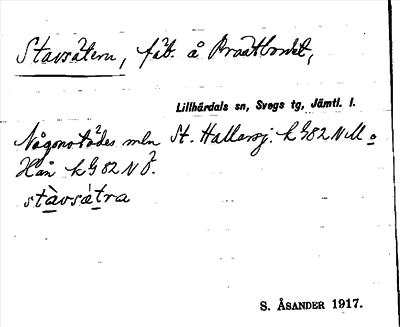 Stavsätern, fäb. å Brattbordet,
Lillhärdals sn, Svegs tg, Jämtl. l.
Någonstädes mln St. Hallarsj. k G82 N M o
Hån k G 82 N Ö.
stàvsátra
S. ÅSANDER 1917.